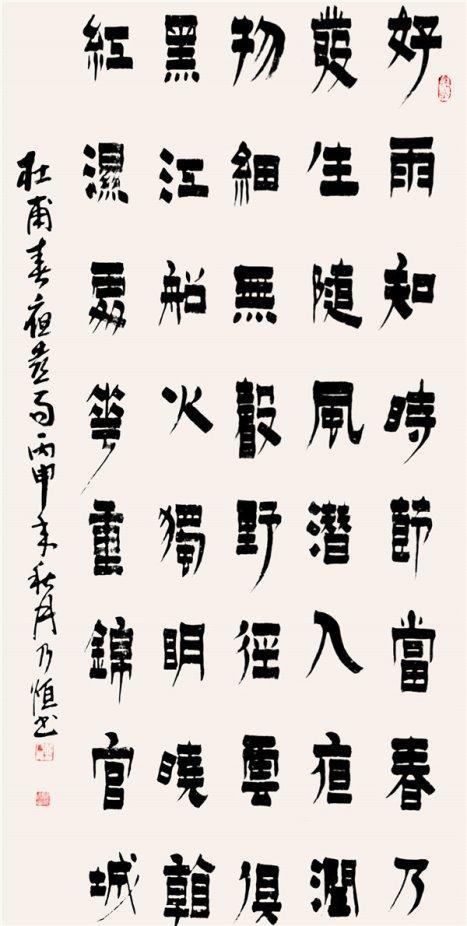 好雨知時節當春乃
發生隨風潛入夜潤
物細無聲野徑雲俱
黑江船火獨明曉看
紅濕處華重錦官城
杜甫春夜喜雨丙申年秋月乃恒书